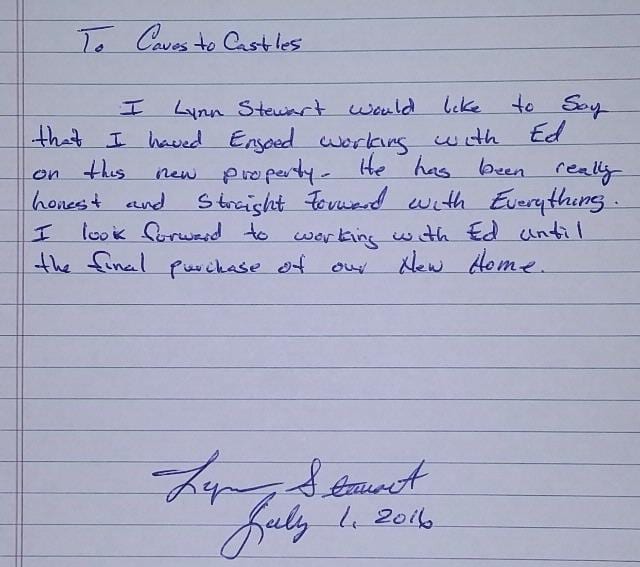 To Caves to Castles
I Lynn Stewart would like to Say
that I haved Engoed working with Ed
on this new property. He has been really
honest and Straight Forward with Everything.
I look forward to working with Ed until
the final purchase of our New Home.
Lynn Stewart
July 1, 2016